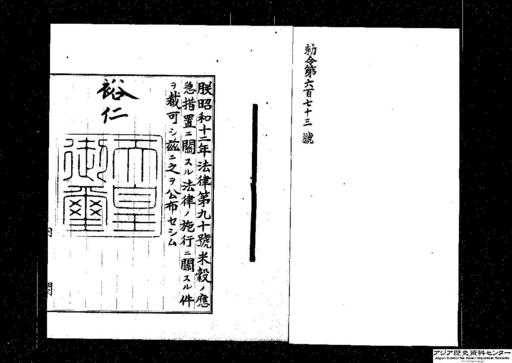 勅令第六百七十三號
朕昭和十二年法律第九十號米穀ノ應
急措置ニ關スル法律ノ施行ニ關スル件
ヲ裁可シ茲ニ之ヲ公布セシム
裕仁
天皇
御璽
内閣
アジア歴史資料センター
Japan Center for Asian Historical Records